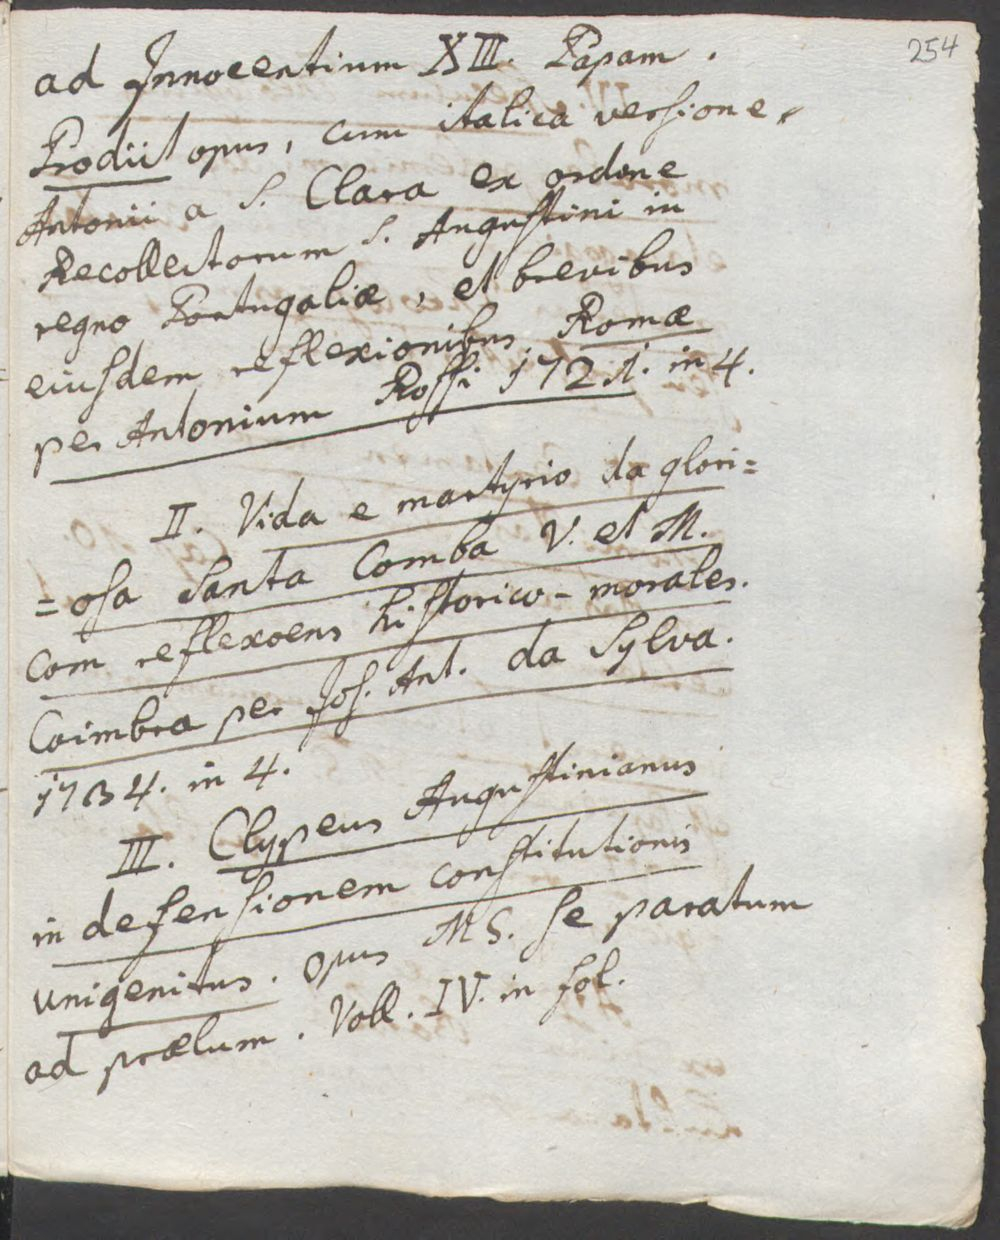 254
ad Innocentium XIII. Papam.
Prodiit opus, cum italica versione
Antonii a S. Clara ex ordine
Recollectorum S. Augustini in
regno Portugaliæ, et brevibus
eiusdem reflexionibus. Romæ
per Antonium Rossi 1721. in 4.
II. Vida e martyrio da glori=
=osa Santa Comba V. et M.
com reflexoens historico-morales.
Coimbra per Jos. Ant. da Sylva.
1734. in 4.
III. Clypeus Augustinianus
in defensionem constitutionis
unigenitus. opus MS. se paratum
ad prælum. Voll. IV. in fol.